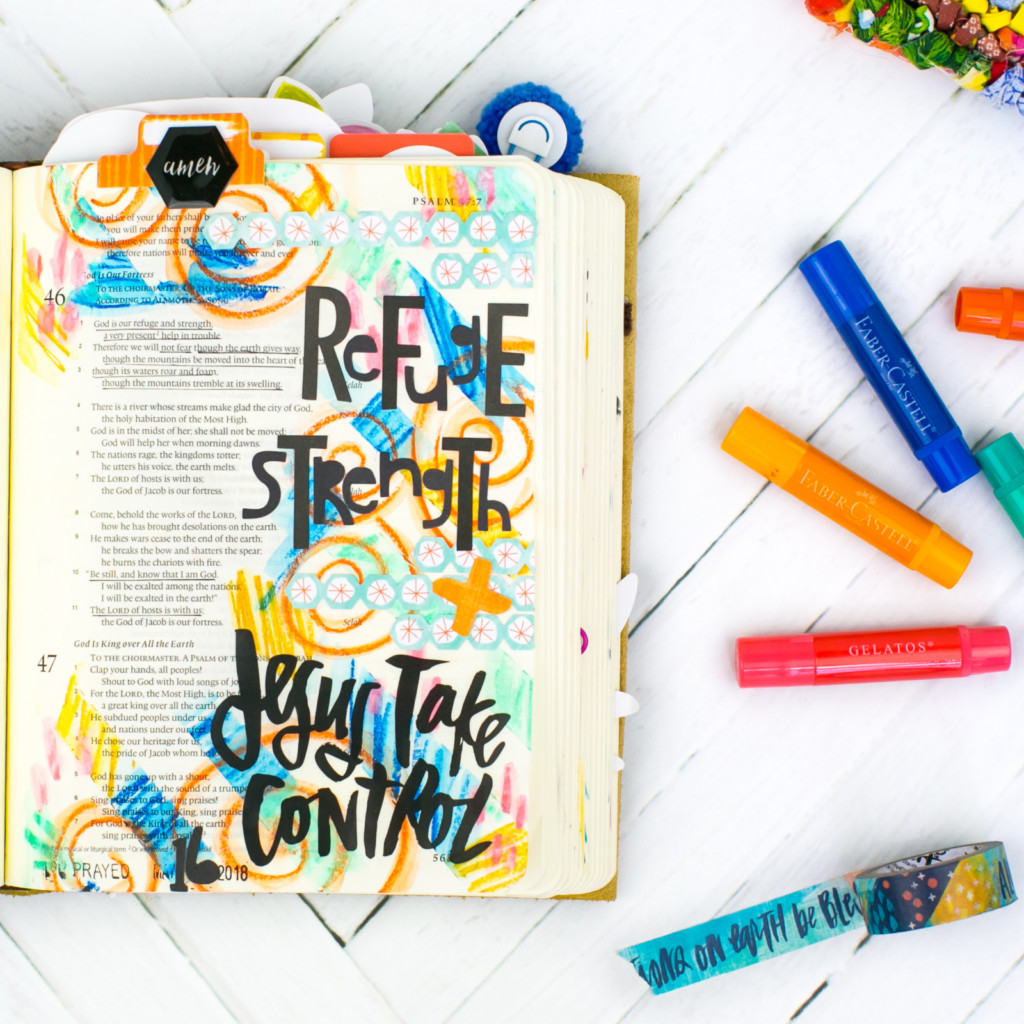 amen
PSALM 47:7
place of your fathers shall b
you will make them princ
I will cause your name to be
therefore nations will praise you forever and ever
God Is Our Fortress
46
TO THE CHOIRMASTER. OF THE SONS OF KORAH.
ACCORDING TO ALAMOTH. A SONG.
1 God is our refuge and strength,
a very present help in trouble.
2 Therefore we will not fear though the earth gives way,
though the mountains be moved into the heart of
3 though its waters roar and foam,
though the mountains tremble at its swelling.
Selah
4 There is a river whose streams make glad the city of God,
the holy habitation of the Most High.
5 God is in the midst of her; she shall not be moved;
God will help her when morning dawns.
6 The nations rage, the kingdoms totter;
he utters his voice, the earth melts.
7 The LORD of hosts is with us;
the God of Jacob is our fortress.
8 Come, behold the works of the LORD,
how he has brought desolations on the earth.
9 He makes wars cease to the end of the earth;
he breaks the bow and shatters the spear;
he burns the chariots with fire.
10 "Be still, and know that I am God.
I will be exalted among the nations,
I will be exalted in the earth!"
11 The LORD of hosts is with us;
the God of Jacob is our fortress.
Selah
God Is King over All the Earth
47
TO THE CHOIRMASTER. A PSALM OF THE SONS OF KORAH.
Clap your hands, all peoples!
Shout to God with loud songs of jo
2 For the LORD, the Most High, is to be
a great king over all the earth.
3 He subdued peoples under us,
and nations under our feet.
4 He chose our heritage for us,
the pride of Jacob whom he
5 God has gone up with a shout,
the LORD with the sound of a trumpe
6 Sing praises to God, sing praises!
Sing praises to our King, sing praise
7 For God is the King of all the earth;
sing praises with a psalm
REFUGE
STRENGTH
Jesus Take
CONTROL
PRAYED
16
2018
FABER-CASTELL
FABER-CASTELL
GELATOS®
ON EARTH be BLE